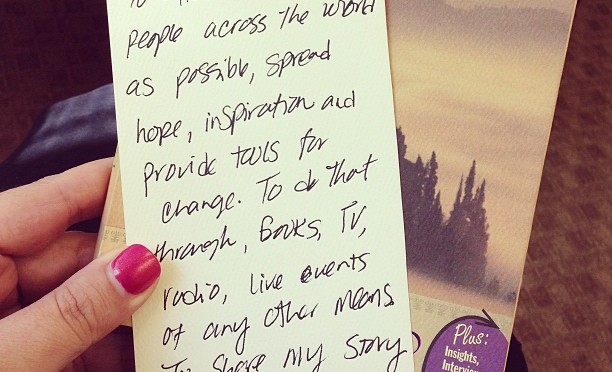 people across the world
as possible, spread
hope, inspiration and
provide tools for
change. To do that
through, books, TV,
radio, live events
of any other means
To share my story
Plus:
Insights,